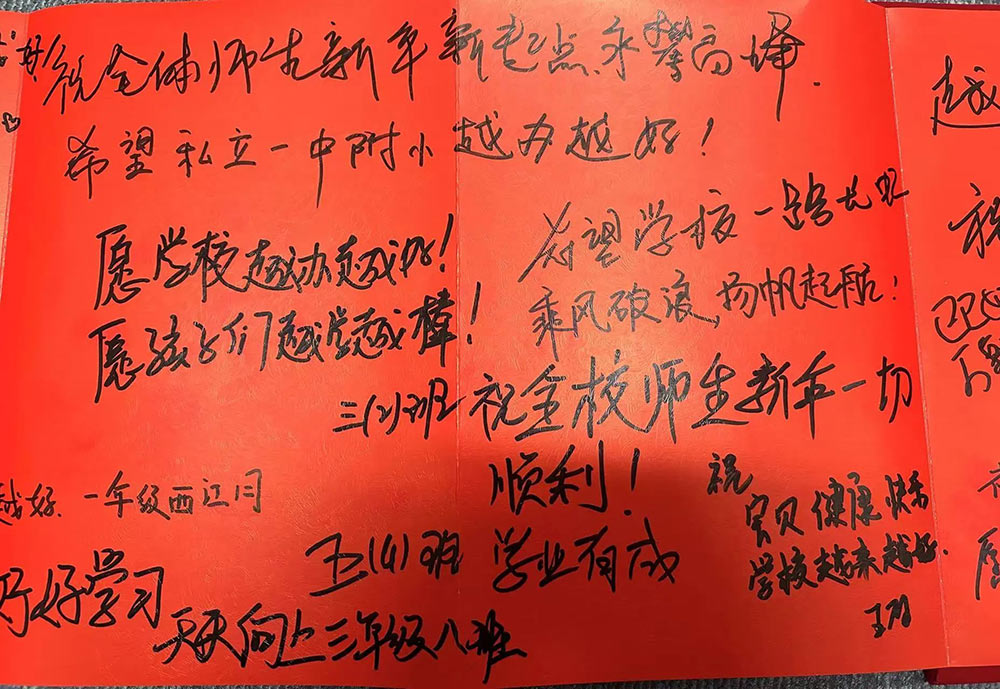 祝全体师生新年新起点永攀高峰.
希望私立一中附小越办越好!
愿学校越办越好!
愿孩子们越学越棒!
希望学校一路长虹
乘风破浪,扬帆起航!
三(2)班 祝全校师生新年一切
顺利!
越好. 一年级西江月
五(4)班 学业有成
祝
宝贝健康快乐
学校越来越好.
好好学习
天天向上三年级八班